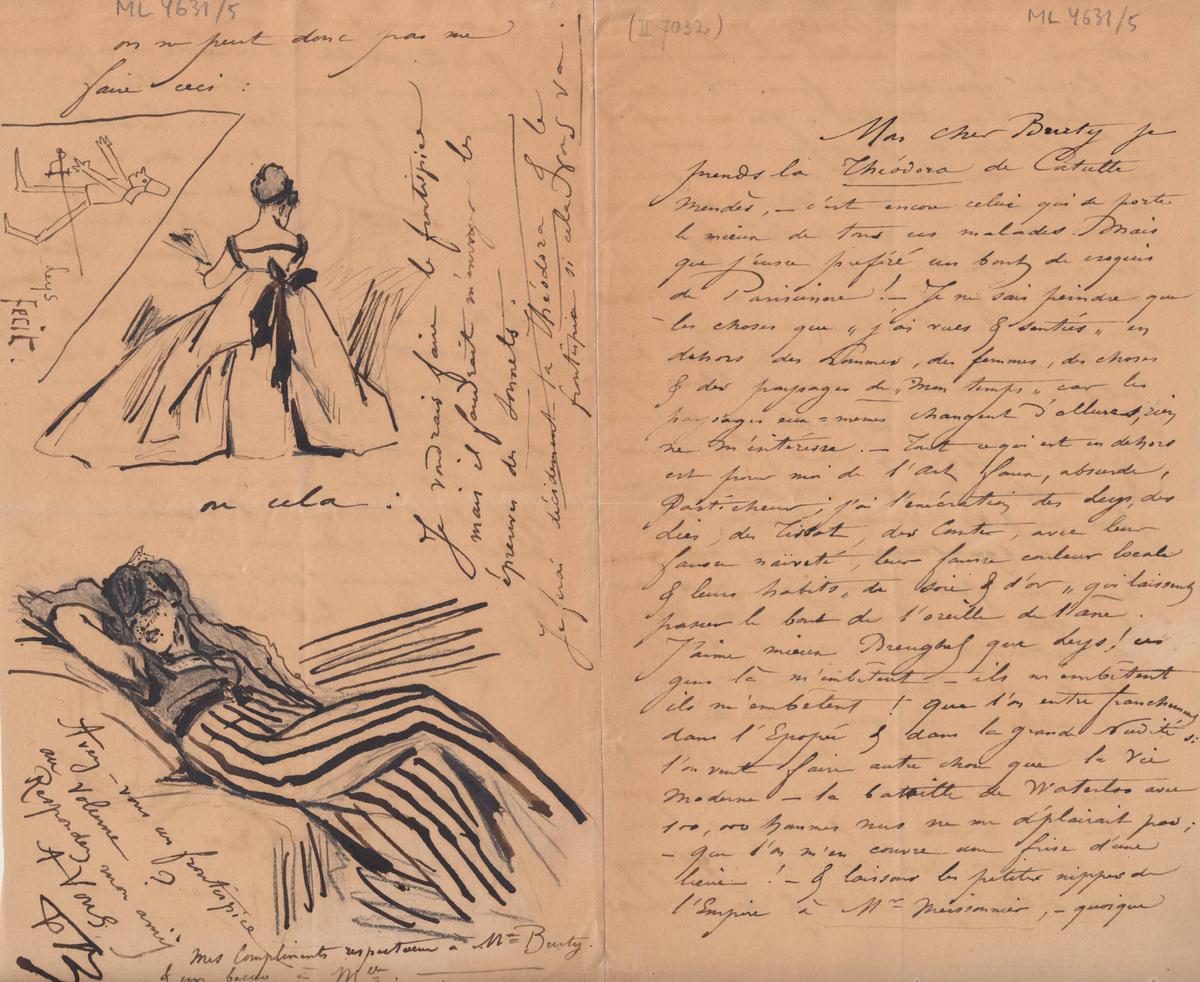 ML 4631/5
on ne peut donc pas me
faire ceci :
Leys
Fecit.
ou cela :
Je voudrais faire le frontispice
mais il faudrait m'envoyer les
épreuves des Sonnets.
Je ferai décidement la Théodora & le
frontispice si cela vous va.
Avez-vous un frontispice
au volume mon ami ?
Respondez Vous
Mes compliments respectueux à Mme Burty.
& un baiser à Melle.
(II 7032)
ML 4631/5
Mon cher Burty je
prends la Théodora de Catulle
Mendès, – c'est encore celui qui se porte
le mieux de tous ces malades. Mais
que j'eusse préféré un bout de croquis
de Parisienne ! – Je ne sais peindre que
les choses que „ j'ai vues & senties „ en
dehors des hommes, des femmes, des choses
& des paysages de „ mon temps „ car les
paysages eux=mêmes changent d'allures, rien
ne m'intéresse. – Tout ce qui est en dehors
est pour moi de l'Art faux, absurde,
Pasticheur ; j'ai l'exécration des Leys, des
Lies, des Tissot, des Comte, avec leur
fausse naïveté, leur fausse couleur locale
& leurs habits „ de soie & d'or „ qui laissent
passer le bout de l'oreille de l'âne.
J'aime mieux Breughel que Leys ! ces
gens là m'embêtent – ils m'embêtent
ils m'embêtent ! que l'on entre franchement
dans l'Epopée & dans la grande Nudité si
l'on veut faire autre chose que la Vie
Moderne – la bataille de Waterloo avec
100,000 hommes nus ne me déplairait pas ;
– que l'on m'en couvre une frise d'une
lieue ! – & laissons les petites nippes de
l'Empire à Mr Meissonnier, – quoique